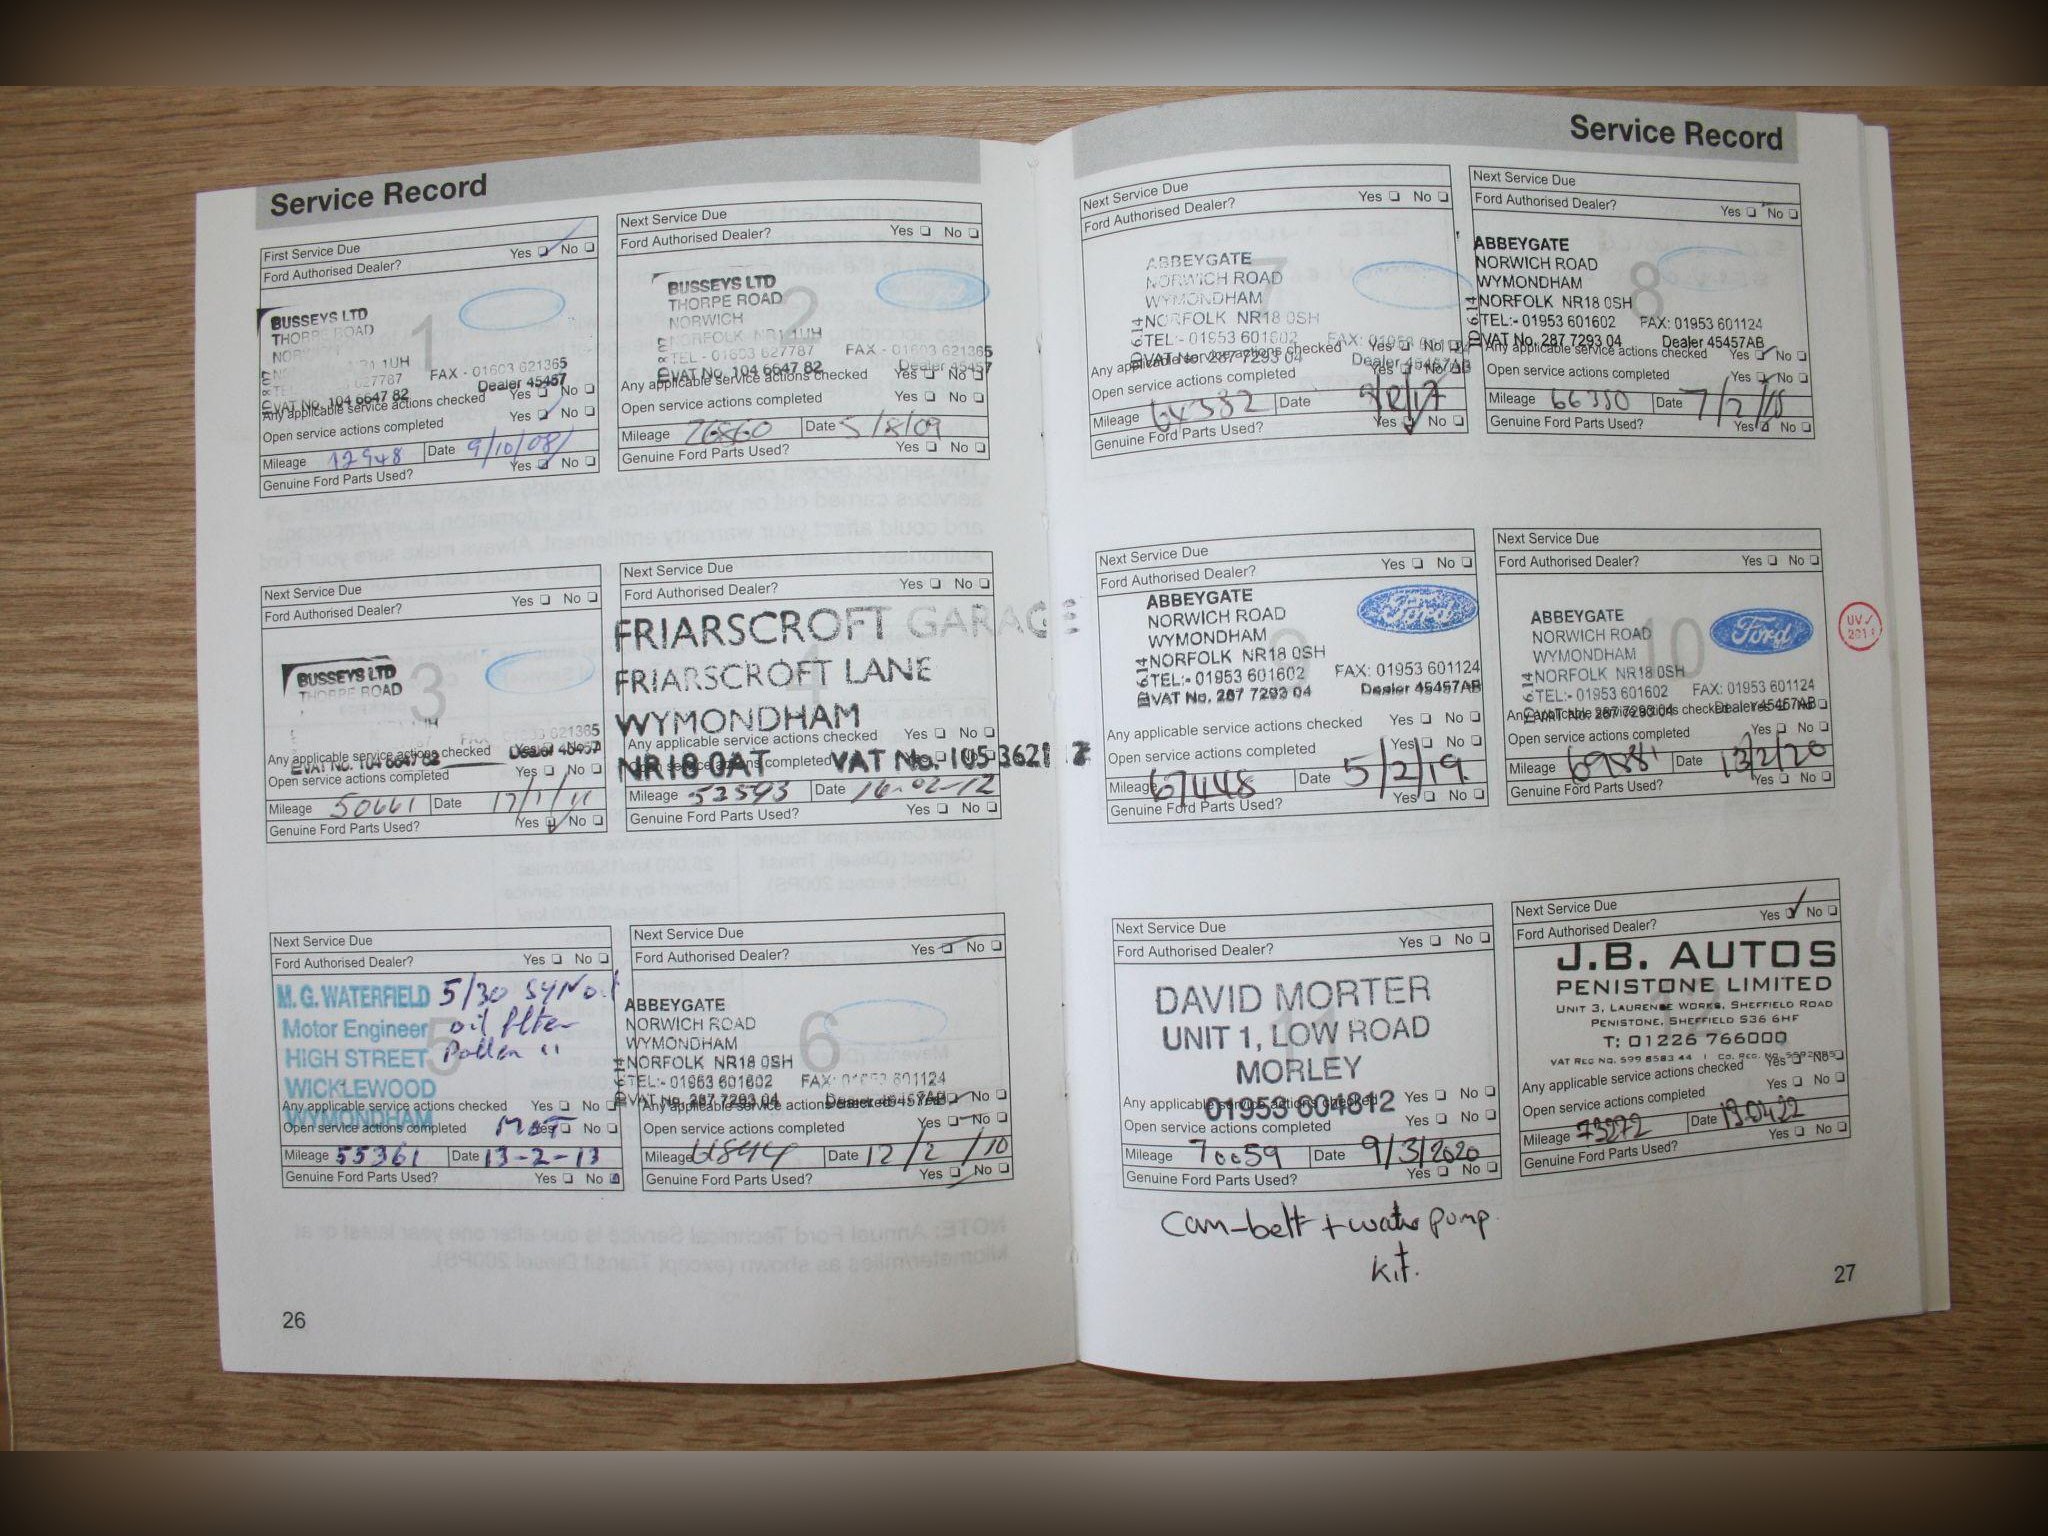 Service Record
First Service Due
Ford Authorised Dealer? Yes No
1
BUSSEYS LTD
THORPE ROAD
1UH
627787 FAX - 01603 621365
VAT No. 104 6647 82 Dealer 45457
Any applicable service actions checked Yes No
Open service actions completed Yes No
Mileage 12948 Date 9/10/08
Genuine Ford Parts Used? Yes No
Next Service Due
Ford Authorised Dealer? Yes No
2
BUSSEYS LTD
THORPE ROAD
NORWICH
NORFOLK NR1 1UH
TEL - 01603 627787 FAX - 01603 621365
VAT No. 104 6647 82 Dealer 45457
Any applicable service actions checked Yes No
Open service actions completed Yes No
Mileage Date 5/8/09
Genuine Ford Parts Used? Yes No
Next Service Due
Ford Authorised Dealer? Yes No
3
BUSSEYS LTD
THORPE ROAD
621365
VAT No. 104 6647 82 Dealer 45457
Any applicable service actions checked Yes No
Open service actions completed Yes No
Mileage 50661 Date 17/1/11
Genuine Ford Parts Used? Yes No
Next Service Due
Ford Authorised Dealer? Yes No
4
FRIARSCROFT GARAGE
FRIARSCROFT LANE
WYMONDHAM
Any applicable service actions checked Yes No
Open service actions completed Yes No
NR18 0AT VAT No. 105 3621
Mileage 53593 Date 16-02-12
Genuine Ford Parts Used? Yes No
Next Service Due
Ford Authorised Dealer? Yes No
5
M. G. WATERFIELD 5/30 SYN oil
Motor Engineer oil filter
HIGH STREET Pollen "
WICKLEWOOD
WYMONDHAM
Any applicable service actions checked Yes No
Open service actions completed MOT Yes No
Mileage 55361 Date 13-2-13
Genuine Ford Parts Used? Yes No
Next Service Due
Ford Authorised Dealer? Yes No
6
ABBEYGATE
NORWICH ROAD
WYMONDHAM
NORFOLK NR18 0SH
TEL:- 01953 601602 FAX: 01953 601124
VAT No. 287 7293 04 Dealer 45457AB
Any applicable service actions checked Yes No
Open service actions completed Yes No
Mileage Date 12/2/10
Genuine Ford Parts Used? Yes No
26
Service Record
Next Service Due
Ford Authorised Dealer? Yes No
7
ABBEYGATE
NORWICH ROAD
WYMONDHAM
NORFOLK NR18 0SH
TEL:- 01953 601602 FAX: 01953
VAT No. 287 7293 04 Dealer 45457AB
Any applicable service actions checked Yes No
Open service actions completed Yes No
Mileage 64382 Date
Genuine Ford Parts Used? Yes No
Next Service Due
Ford Authorised Dealer? Yes No
8
ABBEYGATE
NORWICH ROAD
WYMONDHAM
NORFOLK NR18 0SH
TEL:- 01953 601602 FAX: 01953 601124
VAT No. 287 7293 04 Dealer 45457AB
Any applicable service actions checked Yes No
Open service actions completed Yes No
Mileage 66350 Date
Genuine Ford Parts Used? Yes No
Next Service Due
Ford Authorised Dealer? Yes No
9
Ford
ABBEYGATE
NORWICH ROAD
WYMONDHAM
NORFOLK NR18 0SH
TEL:- 01953 601602 FAX: 01953 601124
VAT No. 287 7293 04 Dealer 45457AB
Any applicable service actions checked Yes No
Open service actions completed Yes No
Mileage 67448 Date 5/2/19
Genuine Ford Parts Used? Yes No
Next Service Due
Ford Authorised Dealer? Yes No
10
Ford
ABBEYGATE
NORWICH ROAD
WYMONDHAM
NORFOLK NR18 0SH
TEL:- 01953 601602 FAX: 01953 601124
VAT No. 287 7293 04 Dealer 45457AB
Any applicable service actions checked Yes No
Open service actions completed Yes No
Mileage 69881 Date 13/2/20
Genuine Ford Parts Used? Yes No
Next Service Due
Ford Authorised Dealer? Yes No
11
DAVID MORTER
UNIT 1, LOW ROAD
MORLEY
01953 604812
Any applicable service actions checked Yes No
Open service actions completed Yes No
Mileage 70059 Date 9/3/2020
Genuine Ford Parts Used? Yes No
Cam-belt + water pump
kit.
Next Service Due
Ford Authorised Dealer? Yes No
12
J.B. AUTOS
PENISTONE LIMITED
UNIT 3, LAURENCE WORKS, SHEFFIELD ROAD
PENISTONE, SHEFFIELD S36 6HF
T: 01226 766000
VAT REG NO. 599 8583 44 | CO. REG. NO.
Any applicable service actions checked Yes No
Open service actions completed Yes No
Mileage 73272 Date 19.04.22
Genuine Ford Parts Used? Yes No
27